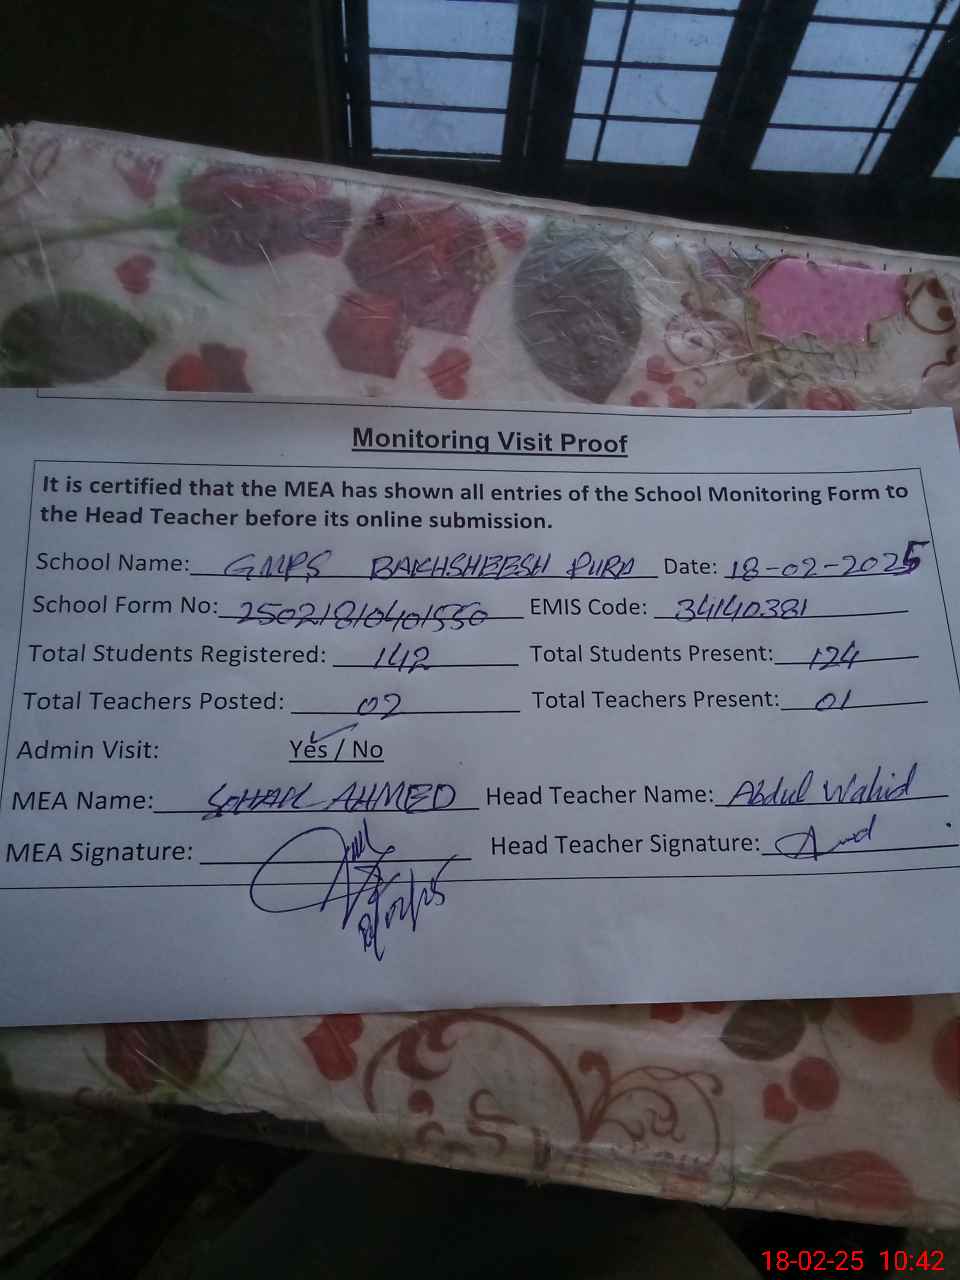 Monitoring Visit Proof
It is certified that the MEA has shown all entries of the School Monitoring Form to
the Head Teacher before its online submission.
School Name: GMPS BAKHSHEESH PURA Date: 18-02-2025
School Form No: 25021810401550 EMIS Code: 34140381
Total Students Registered: 142 Total Students Present: 124
Total Teachers Posted: 02 Total Teachers Present: 01
Admin Visit: Yes / No
MEA Name: AHMED Head Teacher Name: Abdul Wahid
MEA Signature: Head Teacher Signature:
18-02-25 10:42